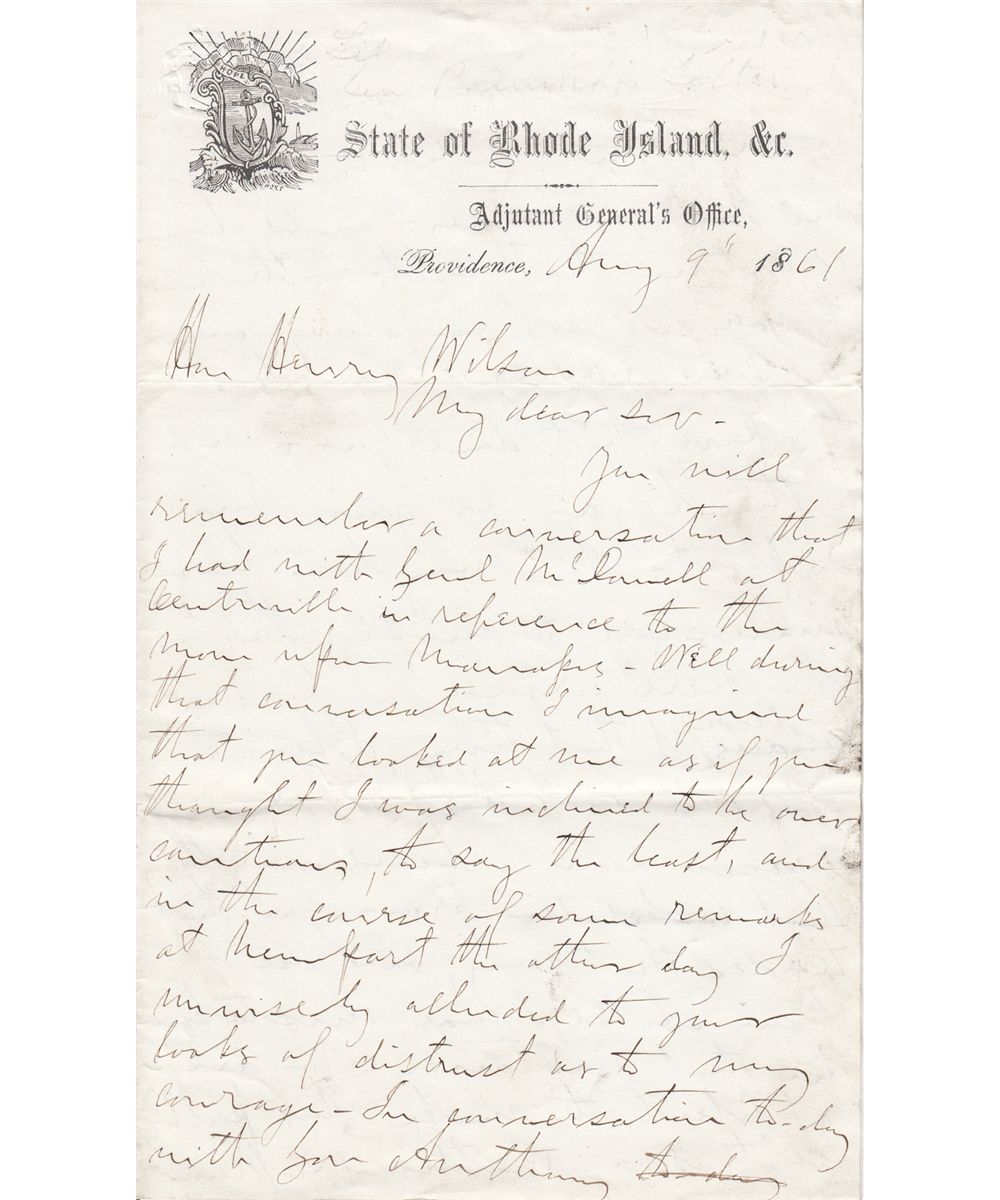 HOPE.
State of Rhode Island, &c.
Adjutant General's Office,
Providence, Aug 9" 1861
Hon Henry Wilson
My dear sir -
You will
remember a conversation that
I had with Genl McDowell at
Centreville in reference to the
move upon Manassas - Well during
that conversation I imagined
that you looked at me as if you
thought I was inclined to be over
cautious, to say the least, and
in the course of some remarks
at Newport the other day I
unwisely alluded to your
looks of distrust as to my
courage - In conversation to-day
with Gov Anthony to-day